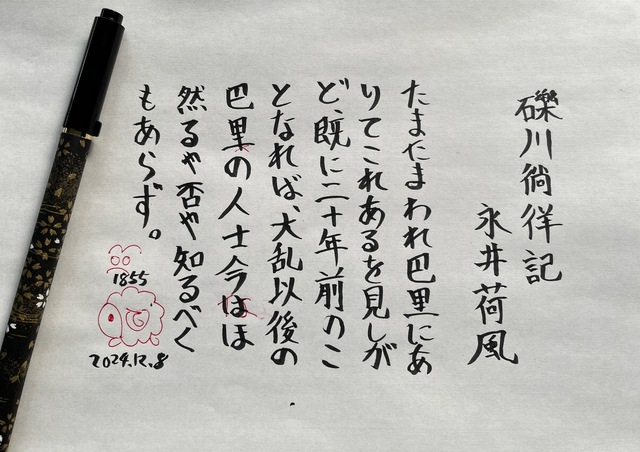 礫川徜徉記
永井荷風
たまたまわれ巴里にあ
りてこれあるを見しが
ど、既に二十年前のこ
となれば、大乱以後の
巴里の人士今はほ
然るや否や知るべく
もあらず。
1855
2024.12.8